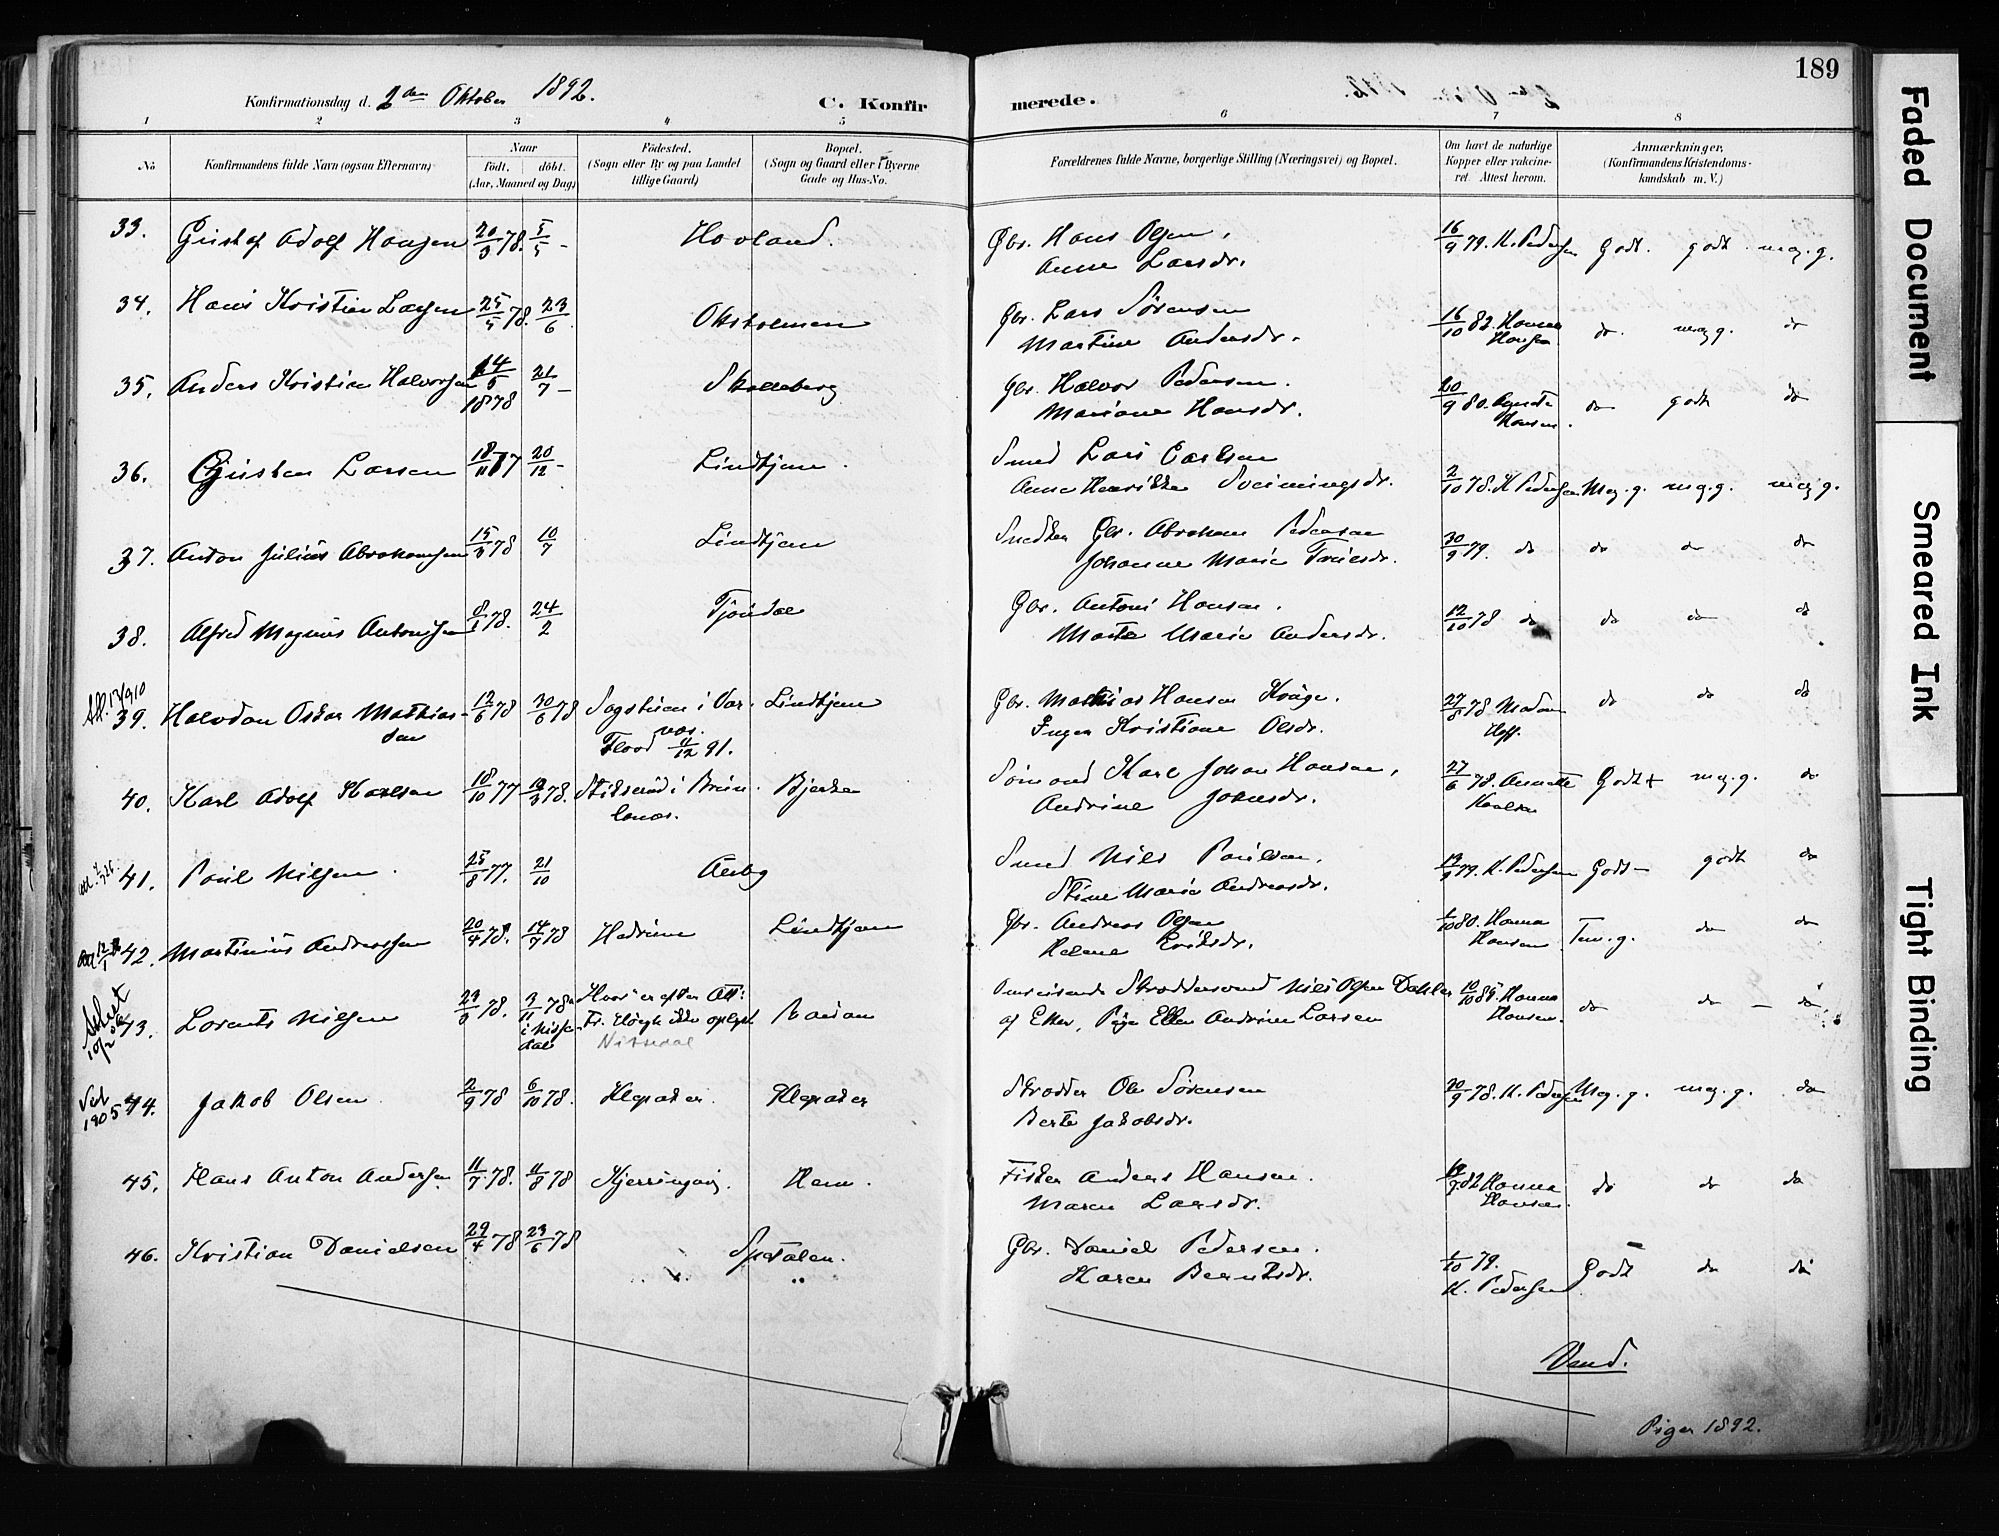 Konfirmationsdag d. 2den Oktober 1892. C. Konfirmerede. 189
1 2 3 4 5 6 7 8
No Konfirmandens fulde Navn (ogsaa Efternavn) Naar født, døbt. (Aar, Maaned og Dag) Fødested. (Sogn eller By og paa Landet tillige Gaard) Bopæl. (Sogn og Gaard eller i Byerne Gade og Hus-No. Forældrenes fulde Navne, borgerlige Stilling (Næringsvei) og Bopæl. Om havt de naturlige Kopper eller vakcineret. Attest herom. Anmærkninger, (Konfirmandens Kristendomskundskab m. V.)
33. Gustaf Adolf Hansen 20/3 78. 5/5 - Hovland. Gbr. Hans Olsen, 16/9 79. K. Pedersen Godt. godt meg. g.
Anne Larsdr.
34. Hans Kristian Larsen 25/5 78. 23/6 Oksholmen Gbr. Lars Sørensen 16/10 82. Hanna Hansen do. meg g. do
Martine Andersdr.
35. Anders Kristian Halvorsen 14/5 1878 21/7 - Skalleberg Gbr. Halvor Pedersen. 20/9 80. Agnete Hansen. do godt do
Mariane Hansdr.
36. Gusten Larsen 18/11 77 20/12 - Lindhjem. Smed Lars Carlsen 2/10 78. K Pedersen Meg. g. meg. g. meg. g.
Anna Henrikke Sveinungsdr.
37. Anton Julius Abrahamsen 15/3 78 10/7 Lindhjem Snedker Gbr. Abraham Pedersen 30/9 79. do do do do
Johanne Marie Truesdr.
38. Alfred Magnus Antonsen 8/1 78. 24/2 Tjøndal Gbr. Anton Hansen. 12/10 78 do do do do
Marte Marie Andersdr.
39. Halvdan Oskar Mathiassen 12/6 78 30/6 78 Sagstuen i Varnæs. Flood 11/12 91. Lindhjem Gbr. Mathias Hansen Krüge. 27/8 78 Madam Hoff. do do do
Inger Kristiane Olsdr.
40. Karl Adolf Karlsen 18/10 77 78. Bjerke Sømand Karl Johan Hansen, 27/6 78. Annette Karlsen Godt+ meg. g. do
Andrine Johnsdr.
41. Paul Nilsen. 25/8 77. 21/10 Aaby Smed Nils Paulsen. 79. K. Pedersen Godt- godt do
Stine Marie Andreasdr.
42. Martinius Andreassen 20/4 78. 14/7 78 Hedrum Lindhjem Gbr. Andreas Olsen 1/10 80. Hanna Hansen Tem. g. do do
Helene Eriksdr.
43. Lorents Nilsen 78. 3/11 78 i Nissedal Hvor er efter Att: Fr. Høegh ikke oplyst Nissedal Omreisende Skræddersvend Nils Olsen Dahler 10/10 85. Hanna Hansen. do do - do
af Eker, Pige Ellen Andrine Larsen
44. Jakob Olsen 2/9 78 6/10 78. Klepaker. Klepaker Skrædder Ole Sørensen 20/9 78. K. Pedersen Meg. g. meg. g. do
Berte Jakobsdr.
45. Hans Anton Andersen 11/7 78. 11/8 78 Kjerringvig. Hem. Fisker Anders Hansen. 82 Hanna Hansen. do do do
Maren Larsdr.
46. Kristian Danielsen 29/4 78 23/6 78 Spetalen. Gbr. Daniel Pedersen. 1/10 79. K. Pedersen Godt do do
Karen Berntsdr.
Vend.
Piger 1892.
Faded Document
Smeared Ink
Tight Binding